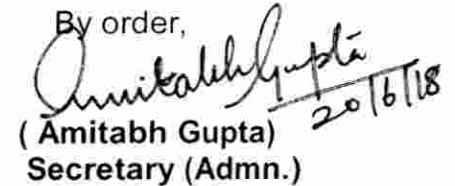 By order,
Amitabh Gupta
20/6/18
( Amitabh Gupta)
Secretary (Admn.)